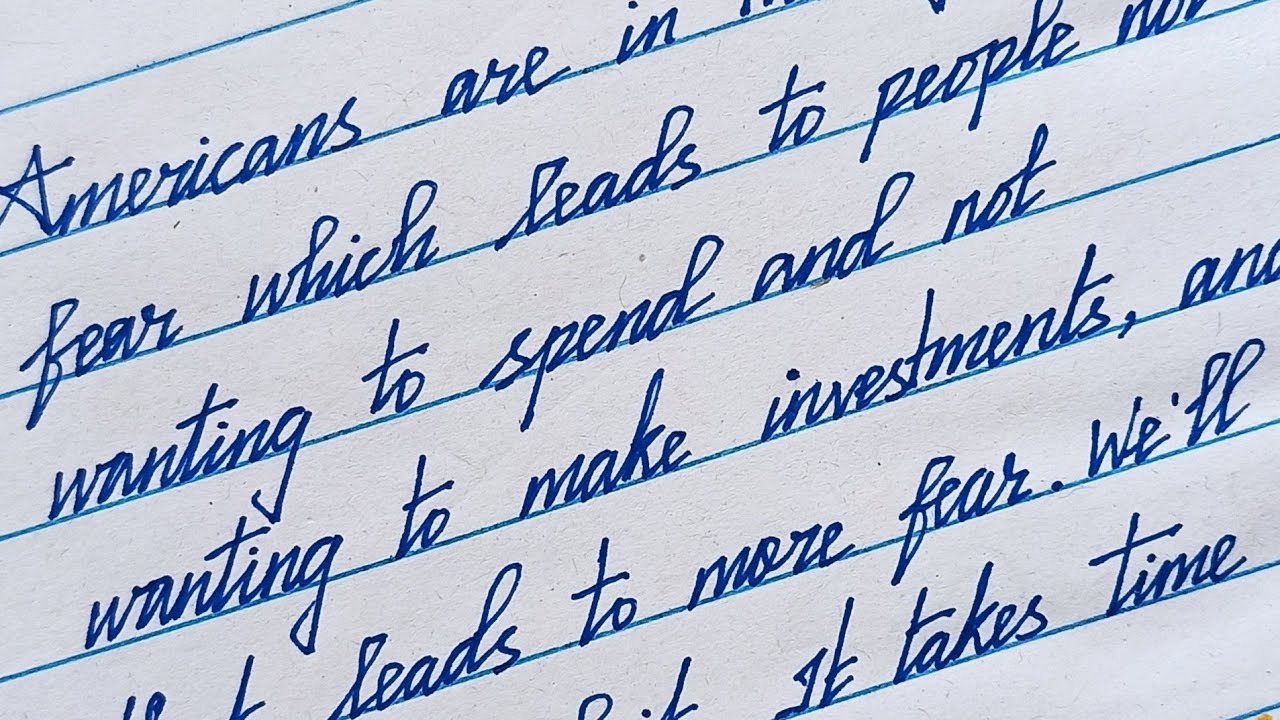 Americans are in
fear which leads to people not
wanting to spend and not
wanting to make investments, and
leads to more fear. We'll
it. It takes time